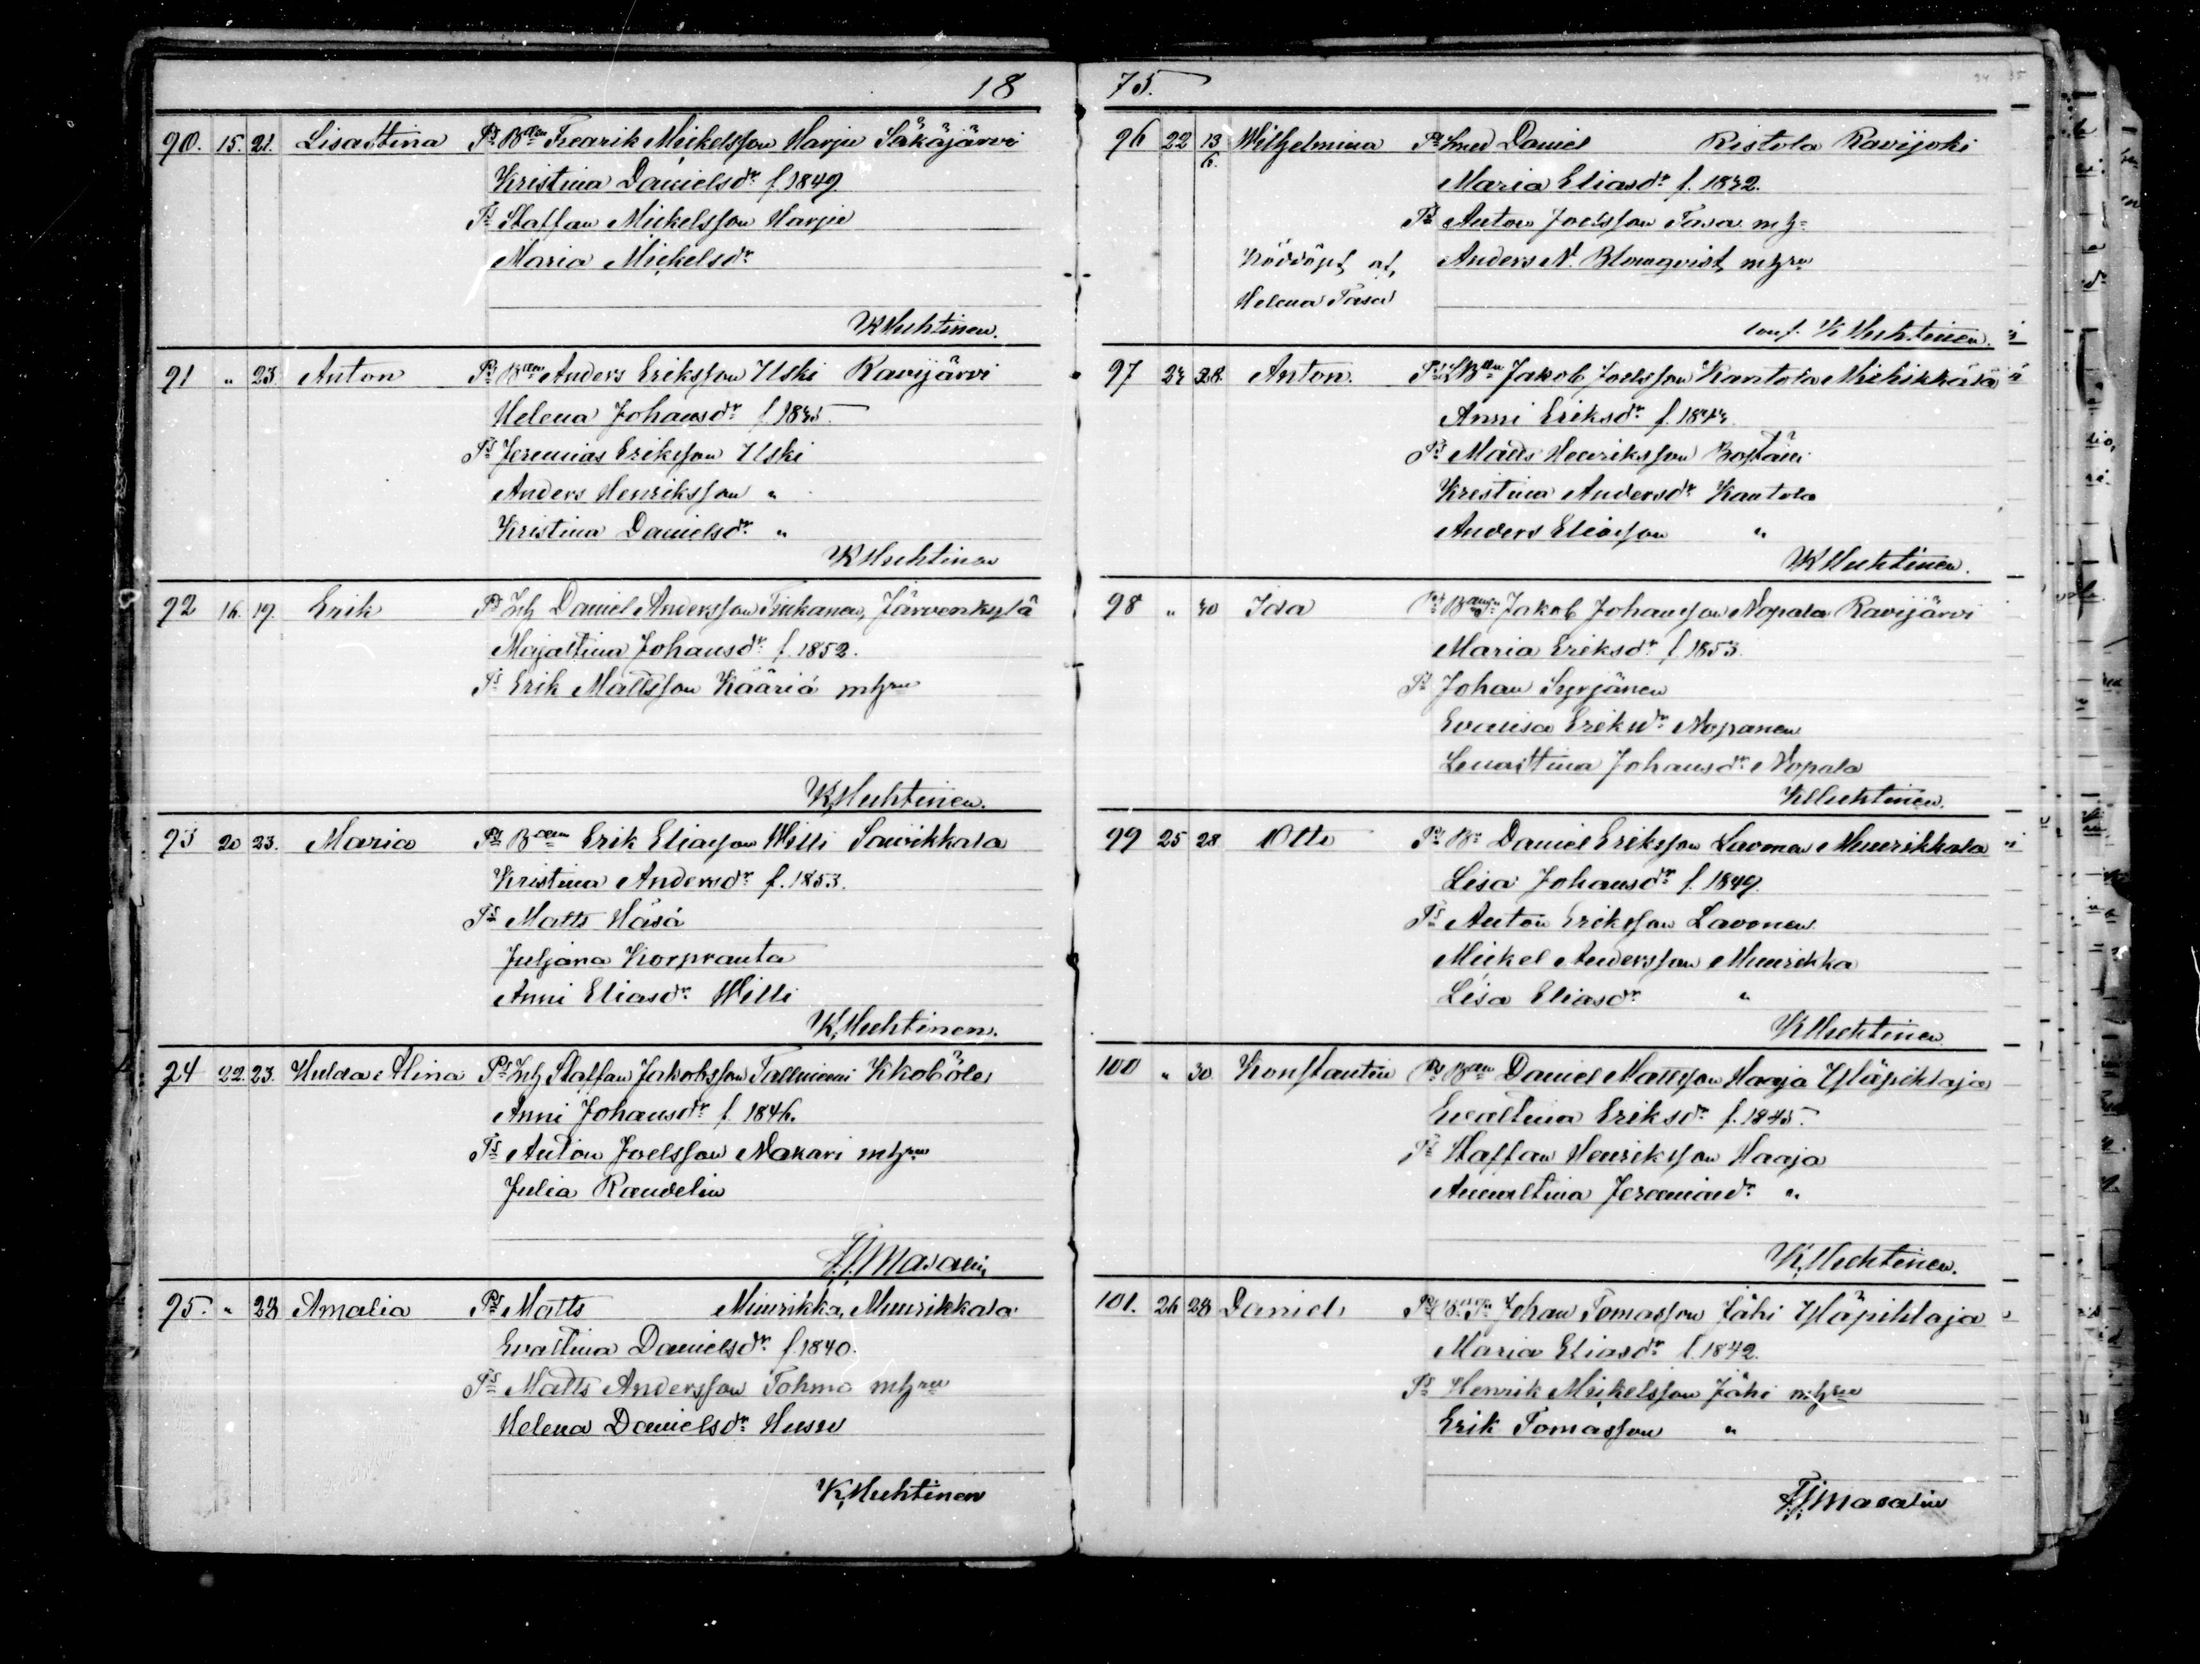 18
90. 15. 21. Lisastina Ps Bden Fredrik Mickelsson Harju Säkäjärvi
Kristina Danielsdr f 1849
Ts Staffan Mickelsson Harju
Maria Mickelsdr
K Huhtinen.
91 " 23. Anton Ps Bden Anders Eriksson Ylski Ravijärvi
Helena Johansdr f 1835
Ts Jeremias Eriksson Ylski
Anders Henriksson "
Kristina Danielsdr "
K Huhtinen
92 16. 19. Erik Ps Inh Daniel Andersson Järvenkylä
Majastina Johansdr f. 1852.
Ts Erik Mattsson Kääriä mhru
K. Huhtinen.
93 20 23. Maria Ps Bden Erik Eliasson Willi Sawikkala
Kristina Andersdr f. 1853.
Ts Matts Häsä
Juljana Korpranta
Anni Eliasdr Willi
K. Huhtinen.
94 22. 23. Hulda Alina Ps Inh Staffan Jakobsson Tallniemi Kkoböle
Anni Johansdr f. 1846.
Ts Anton Joelsson Nakari mhru
Julia Randelin
F.J. Masalin
95. " 28 Amalia Ps Matts Muurikka, Muurikkala
Evastina Danielsdr f 1840.
Ts Matts Andersson Tohmo mhru
Helena Danielsdr Husu
K. Huhtinen
75.
96 22 13/6. Wilhelmina Ps Smed Daniel Ristola Ravijoki
Maria Eliasdr f. 1832.
Ts Anton Joelsson Tasa mh
Nöddöpt af, Anders N. Blomqvist mhru
Helena Tasa
conf. K Huhtinen.
97 24 28. Anton. Ps Jakob Joelsson Kantola Miehikkälä
Anni Eriksdr f. 1844.
Ts Matts Henriksson
Kristina Andersdr Kantola
Anders Eliasson "
K Huhtinen.
98 " 30 Ida Ps Jakob Johansson Nopala Ravijärvi
Maria Eriksdr f 1853.
Ts Johan Syrjänen
Evalisa Eriksdr Nopanen
Lenastina Johansdr Nopala
K Huhtinen.
99 25 28 Otto Ps Bn Daniel Eriksson Lavonen Muurikkala
Lisa Johansdr f. 1849.
Ts Anton Eriksson Lavonen
Mickel Andersson Muurikka
Lisa Eliasdr "
K Huhtinen
100 " 30 Konstantin Ps Bden Daniel Mattsson Haaja Yläpihlaja
Evastina Eriksdr f. 1845.
Ts Staffan Henriksson Haaja
Annastina Jeremiasdr "
K. Huhtinen.
101. 26 28 Daniel Ps Johan Tomasson Jähi Yläpihlaja
Maria Eliasdr f. 1842.
Ts Henrik Mickelsson Jähi mhru
Erik Tomasson "
F.J. Masalin